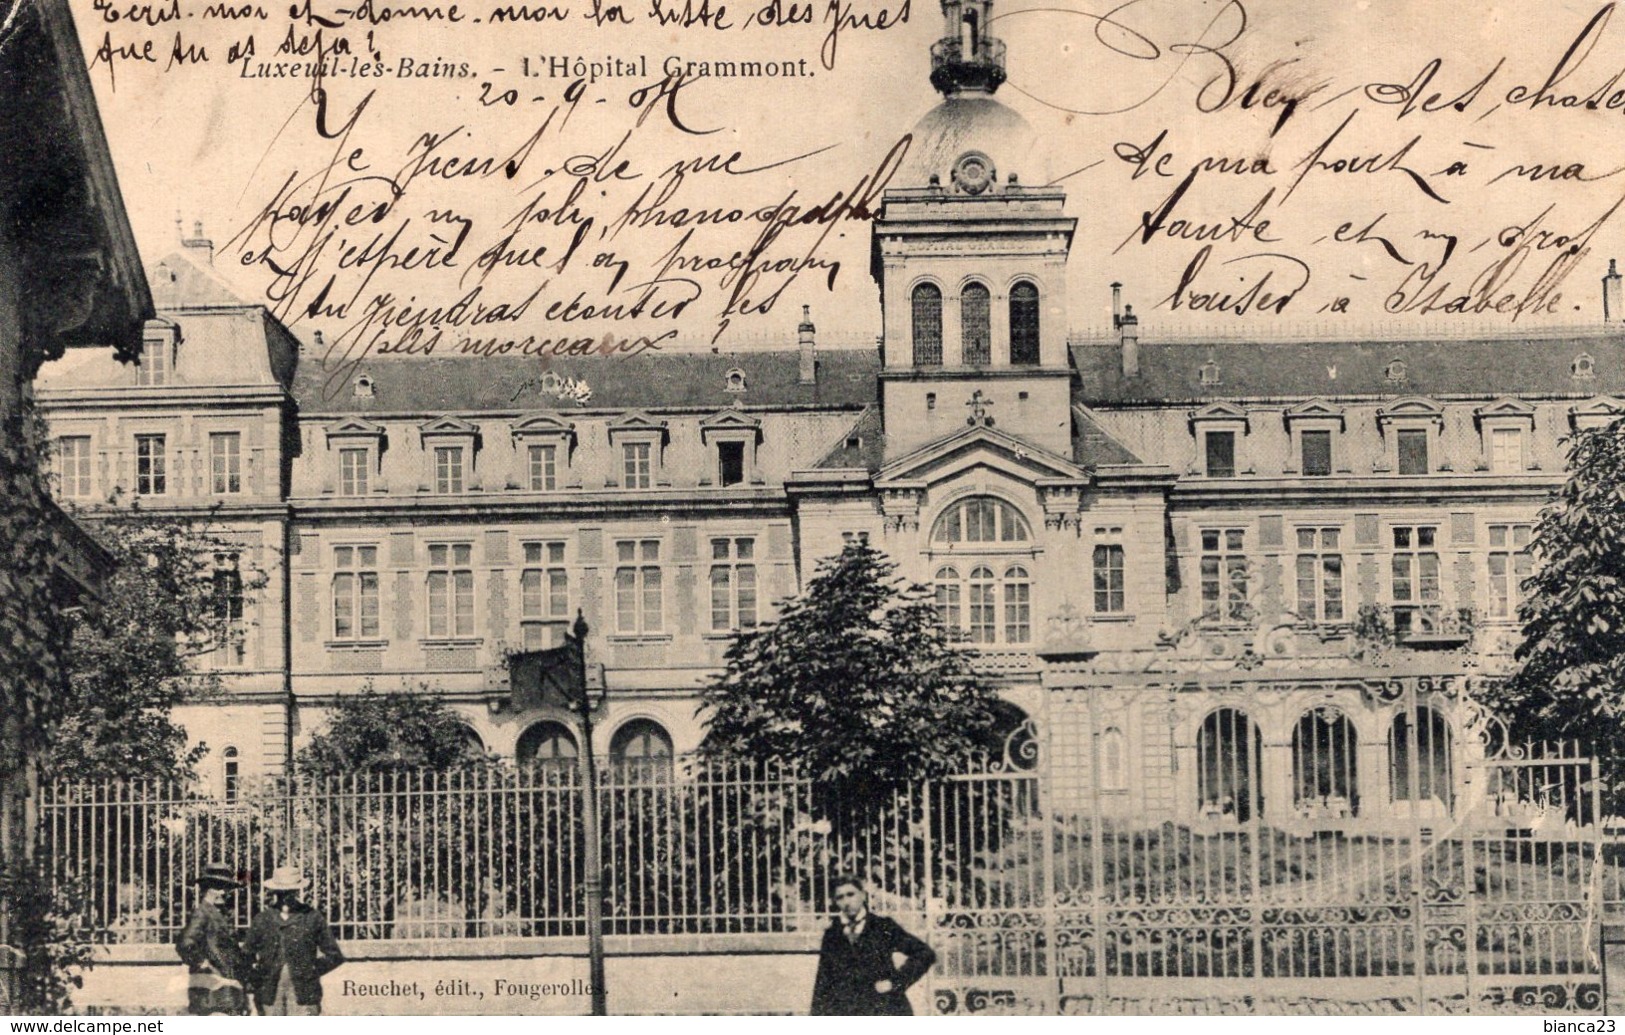 Ecrit-moi et donne-moi la liste des vues
que tu as déja ?
Luxeuil-les-Bains. - L'Hôpital Grammont.
20-9-04
Je viens de me
payer un joli phonographe
et j'espère que l'an prochain
tu viendras écouter les
jolis morceaux !
Bien des choses
de ma part à ma
tante et un gros
baiser à Isabelle.
HÔPITAL GRAMMONT
Reuchet, édit., Fougerolles.
www.delcampe.net
bianca23